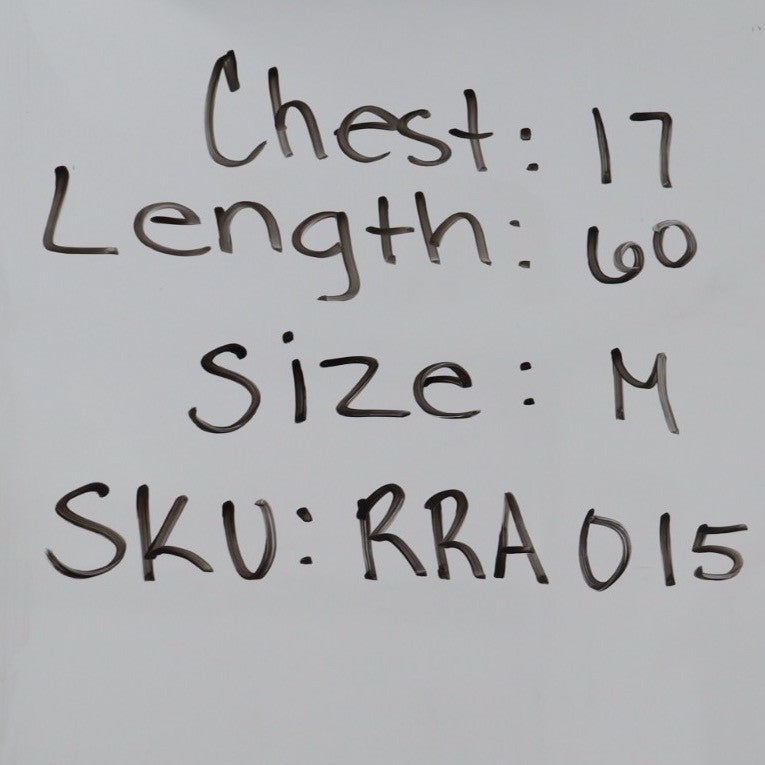 Chest: 17
Length: 60
Size: M
SKU: RRA015